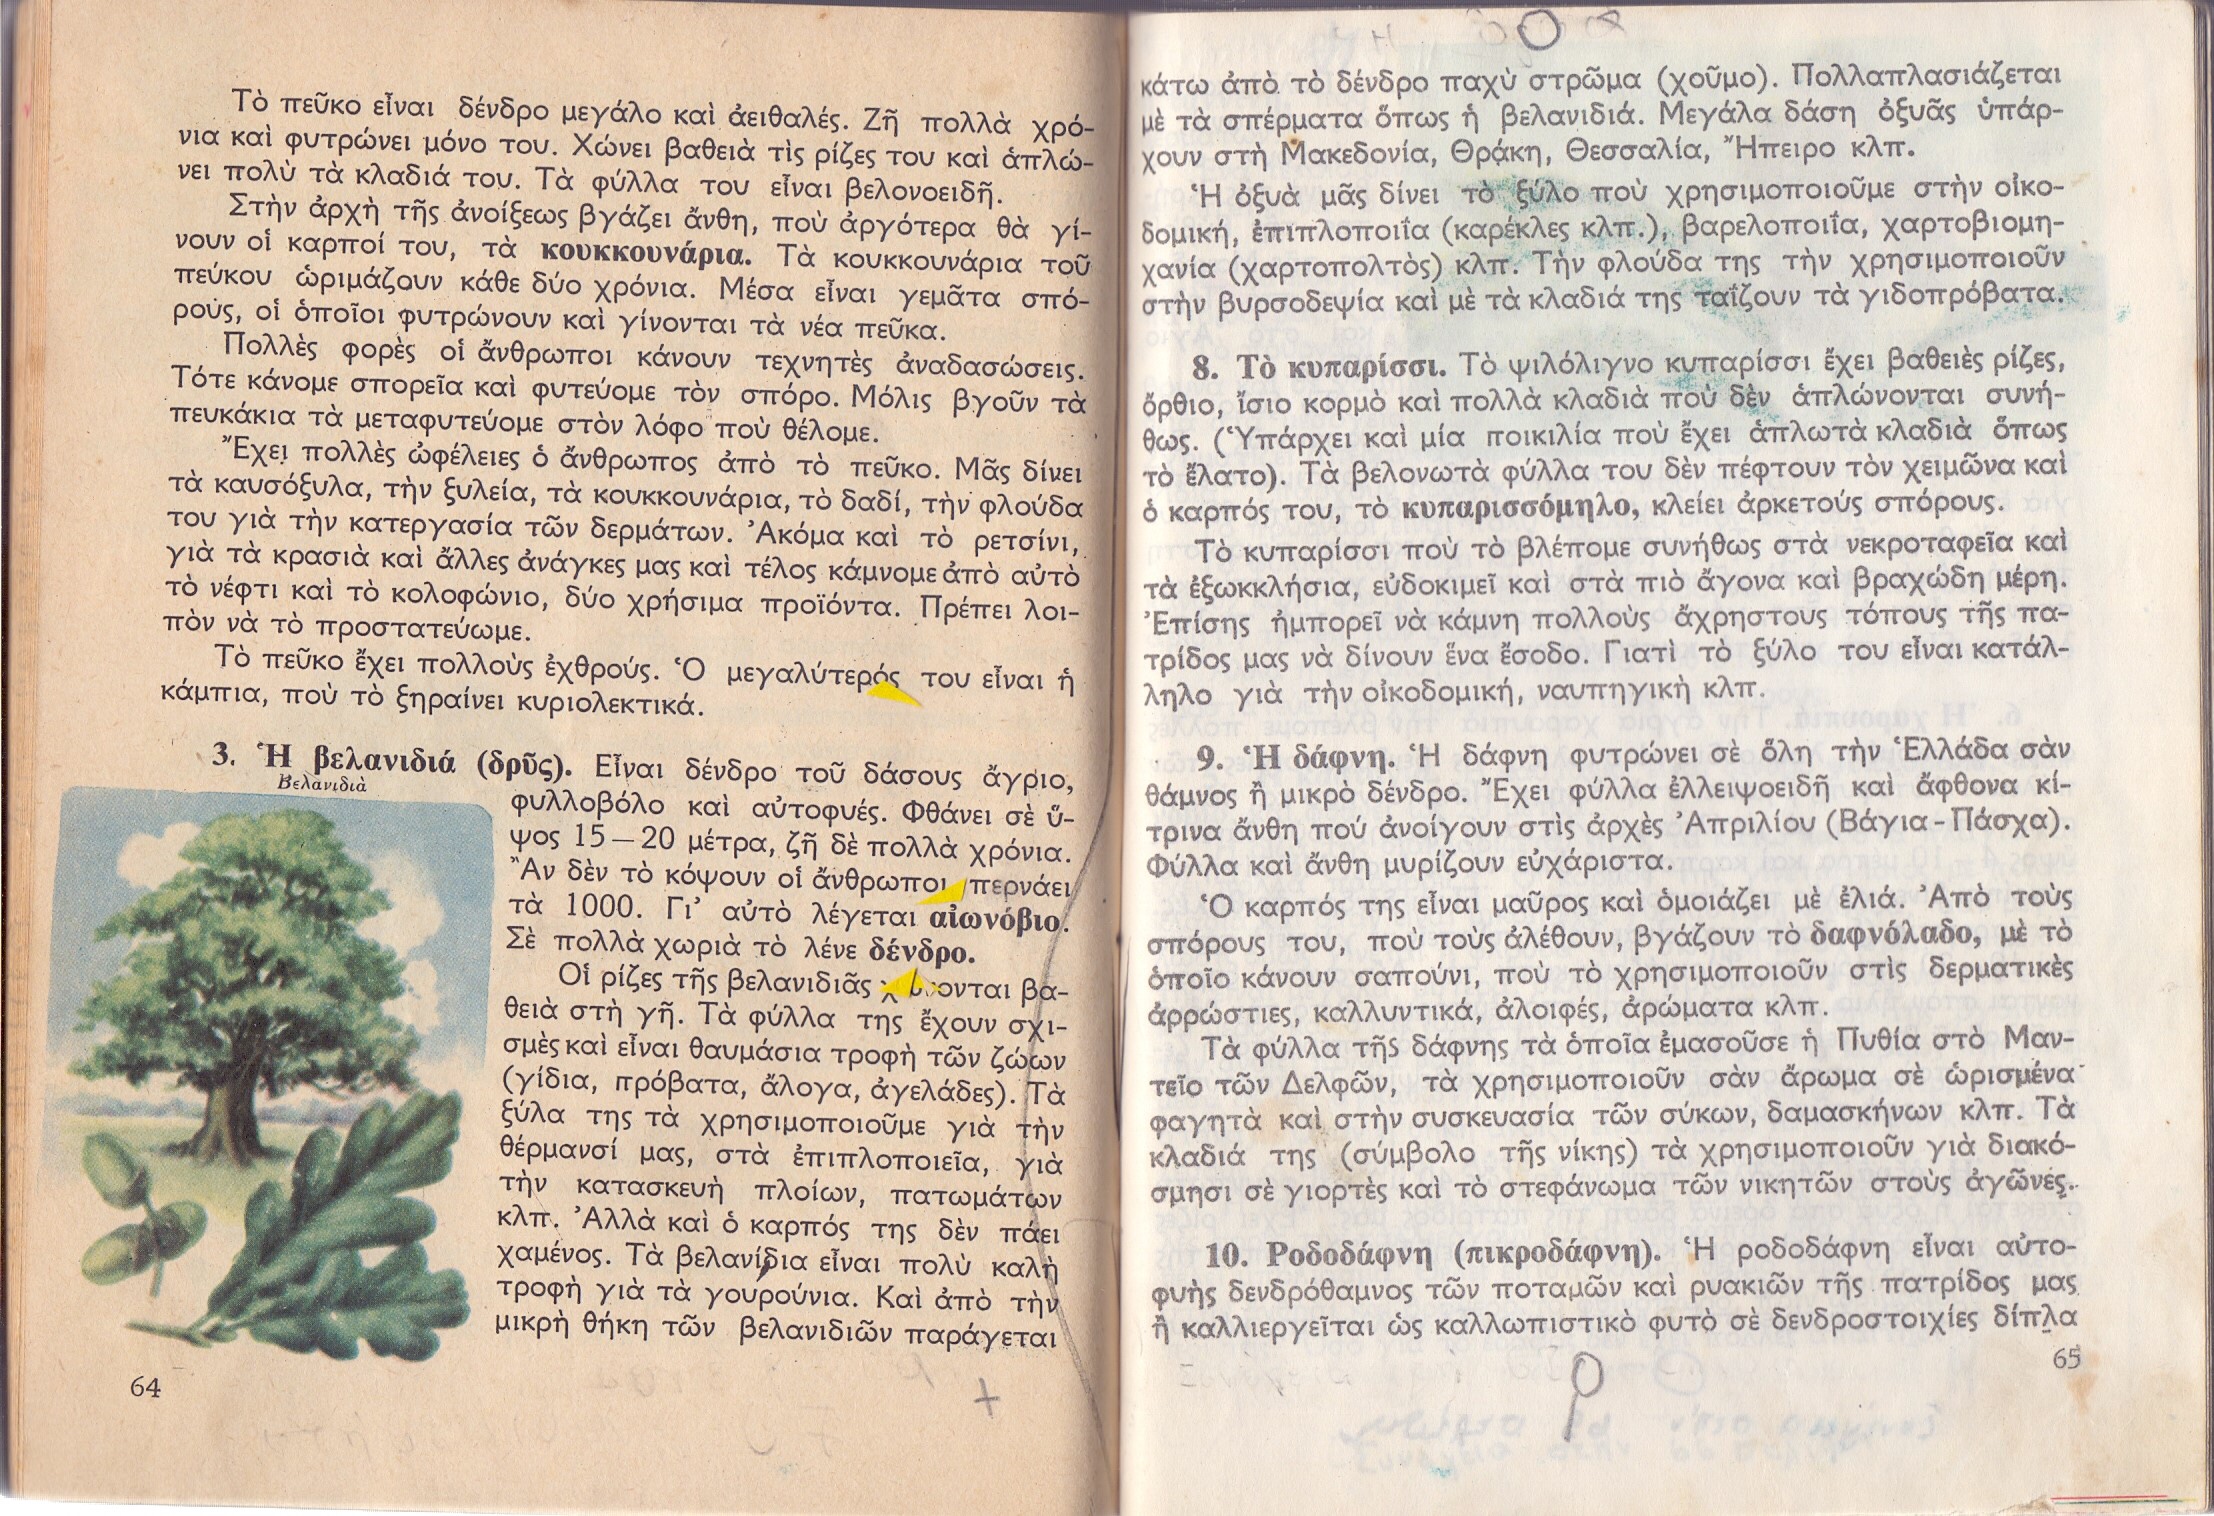 Τὸ πεῦκο εἶναι δένδρο μεγάλο καὶ ἀειθαλές. Ζῆ πολλὰ χρό-
νια καὶ φυτρώνει μόνο του. Χώνει βαθειὰ τὶς ρίζες του καὶ ἁπλώ-
νει πολὺ τὰ κλαδιά του. Τὰ φύλλα του εἶναι βελονοειδῆ.
Στὴν ἀρχὴ τῆς ἀνοίξεως βγάζει ἄνθη, ποὺ ἀργότερα θὰ γί-
νουν οἱ καρποί του, τὰ κουκκουνάρια. Τὰ κουκκουνάρια τοῦ
πεύκου ὡριμάζουν κάθε δύο χρόνια. Μέσα εἶναι γεμᾶτα σπό-
ρους, οἱ ὁποῖοι φυτρώνουν καὶ γίνονται τὰ νέα πεῦκα.
Πολλὲς φορὲς οἱ ἄνθρωποι κάνουν τεχνητὲς ἀναδασώσεις.
Τότε κάνομε σπορεῖα καὶ φυτεύομε τὸν σπόρο. Μόλις βγοῦν τὰ
πευκάκια τὰ μεταφυτεύομε στὸν λόφο ποὺ θέλομε.
Ἔχει πολλὲς ὠφέλειες ὁ ἄνθρωπος ἀπὸ τὸ πεῦκο. Μᾶς δίνει
τὰ καυσόξυλα, τὴν ξυλεία, τὰ κουκκουνάρια, τὸ δαδί, τὴν φλούδα
του γιὰ τὴν κατεργασία τῶν δερμάτων. Ἀκόμα καὶ τὸ ρετσίνι,
γιὰ τὰ κρασιὰ καὶ ἄλλες ἀνάγκες μας καὶ τέλος κάμνομε ἀπὸ αὐτὸ
τὸ νέφτι καὶ τὸ κολοφώνιο, δύο χρήσιμα προϊόντα. Πρέπει λοι-
πὸν νὰ τὸ προστατεύωμε.
Τὸ πεῦκο ἔχει πολλοὺς ἐχθρούς. Ὁ μεγαλύτερός του εἶναι ἡ
κάμπια, ποὺ τὸ ξηραίνει κυριολεκτικά.
3. Ἡ βελανιδιά (δρῦς). Εἶναι δένδρο τοῦ δάσους ἄγριο,
Βελανιδιὰ
φυλλοβόλο καὶ αὐτοφυές. Φθάνει σὲ ὕ-
ψος 15 — 20 μέτρα, ζῆ δὲ πολλὰ χρόνια.
Ἂν δὲν τὸ κόψουν οἱ ἄνθρωποι περνάει
τὰ 1000. Γι' αὐτὸ λέγεται αἰωνόβιο.
Σὲ πολλὰ χωριὰ τὸ λένε δένδρο.
Οἱ ρίζες τῆς βελανιδιᾶς χώνονται βα-
θειὰ στὴ γῆ. Τὰ φύλλα της ἔχουν σχι-
σμὲς καὶ εἶναι θαυμάσια τροφὴ τῶν ζώων
(γίδια, πρόβατα, ἄλογα, ἀγελάδες). Τὰ
ξύλα της τὰ χρησιμοποιοῦμε γιὰ τὴν
θέρμανσί μας, στὰ ἐπιπλοποιεῖα, γιὰ
τὴν κατασκευὴ πλοίων, πατωμάτων
κλπ. Ἀλλὰ καὶ ὁ καρπός της δὲν πάει
χαμένος. Τὰ βελανίδια εἶναι πολὺ καλὴ
τροφὴ γιὰ τὰ γουρούνια. Καὶ ἀπὸ τὴν
μικρὴ θήκη τῶν βελανιδιῶν παράγεται
64
κάτω ἀπὸ τὸ δένδρο παχὺ στρῶμα (χοῦμο). Πολλαπλασιάζεται
μὲ τὰ σπέρματα ὅπως ἡ βελανιδιά. Μεγάλα δάση ὀξυᾶς ὑπάρ-
χουν στὴ Μακεδονία, Θράκη, Θεσσαλία, Ἤπειρο κλπ.
Ἡ ὀξυὰ μᾶς δίνει τὸ ξύλο ποὺ χρησιμοποιοῦμε στὴν οἰκο-
δομική, ἐπιπλοποιΐα (καρέκλες κλπ.), βαρελοποιΐα, χαρτοβιομη-
χανία (χαρτοπολτὸς) κλπ. Τὴν φλούδα της τὴν χρησιμοποιοῦν
στὴν βυρσοδεψία καὶ μὲ τὰ κλαδιά της ταΐζουν τὰ γιδοπρόβατα.
8. Τὸ κυπαρίσσι. Τὸ ψιλόλιγνο κυπαρίσσι ἔχει βαθειὲς ρίζες,
ὄρθιο, ἴσιο κορμὸ καὶ πολλὰ κλαδιὰ ποὺ δὲν ἁπλώνονται συνή-
θως. (Ὑπάρχει καὶ μία ποικιλία ποὺ ἔχει ἁπλωτὰ κλαδιὰ ὅπως
τὸ ἔλατο). Τὰ βελονωτὰ φύλλα του δὲν πέφτουν τὸν χειμῶνα καὶ
ὁ καρπός του, τὸ κυπαρισσόμηλο, κλείει ἀρκετούς σπόρους.
Τὸ κυπαρίσσι ποὺ τὸ βλέπομε συνήθως στὰ νεκροταφεῖα καὶ
τὰ ἐξωκκλήσια, εὐδοκιμεῖ καὶ στὰ πιὸ ἄγονα καὶ βραχώδη μέρη.
Ἐπίσης ἠμπορεῖ νὰ κάμνη πολλοὺς ἄχρηστους τόπους τῆς πα-
τρίδος μας νὰ δίνουν ἕνα ἔσοδο. Γιατὶ τὸ ξύλο του εἶναι κατάλ-
ληλο γιὰ τὴν οἰκοδομική, ναυπηγικὴ κλπ.
9. Ἡ δάφνη. Ἡ δάφνη φυτρώνει σὲ ὅλη τὴν Ἑλλάδα σὰν
θάμνος ἢ μικρὸ δένδρο. Ἔχει φύλλα ἐλλειψοειδῆ καὶ ἄφθονα κί-
τρινα ἄνθη πού ἀνοίγουν στὶς ἀρχὲς Ἀπριλίου (Βάγια - Πάσχα).
Φύλλα καὶ ἄνθη μυρίζουν εὐχάριστα.
Ὁ καρπός της εἶναι μαῦρος καὶ ὁμοιάζει μὲ ἐλιά. Ἀπὸ τοὺς
σπόρους του, ποὺ τοὺς ἀλέθουν, βγάζουν τὸ δαφνόλαδο, μὲ τὸ
ὁποῖο κάνουν σαπούνι, ποὺ τὸ χρησιμοποιοῦν στὶς δερματικὲς
ἀρρώστιες, καλλυντικά, ἀλοιφές, ἀρώματα κλπ.
Τὰ φύλλα τῆς δάφνης τὰ ὁποῖα ἐμασοῦσε ἡ Πυθία στὸ Μαν-
τεῖο τῶν Δελφῶν, τὰ χρησιμοποιοῦν σὰν ἄρωμα σὲ ὡρισμένα
φαγητὰ καὶ στὴν συσκευασία τῶν σύκων, δαμασκήνων κλπ. Τὰ
κλαδιά της (σύμβολο τῆς νίκης) τὰ χρησιμοποιοῦν γιὰ διακό-
σμησι σὲ γιορτὲς καὶ τὸ στεφάνωμα τῶν νικητῶν στοὺς ἀγῶνες.
10. Ροδοδάφνη (πικροδάφνη). Ἡ ροδοδάφνη εἶναι αὐτο-
φυὴς δενδρόθαμνος τῶν ποταμῶν καὶ ρυακιῶν τῆς πατρίδος μας
ἢ καλλιεργεῖται ὡς καλλωπιστικὸ φυτὸ σὲ δενδροστοιχίες δίπλα
65